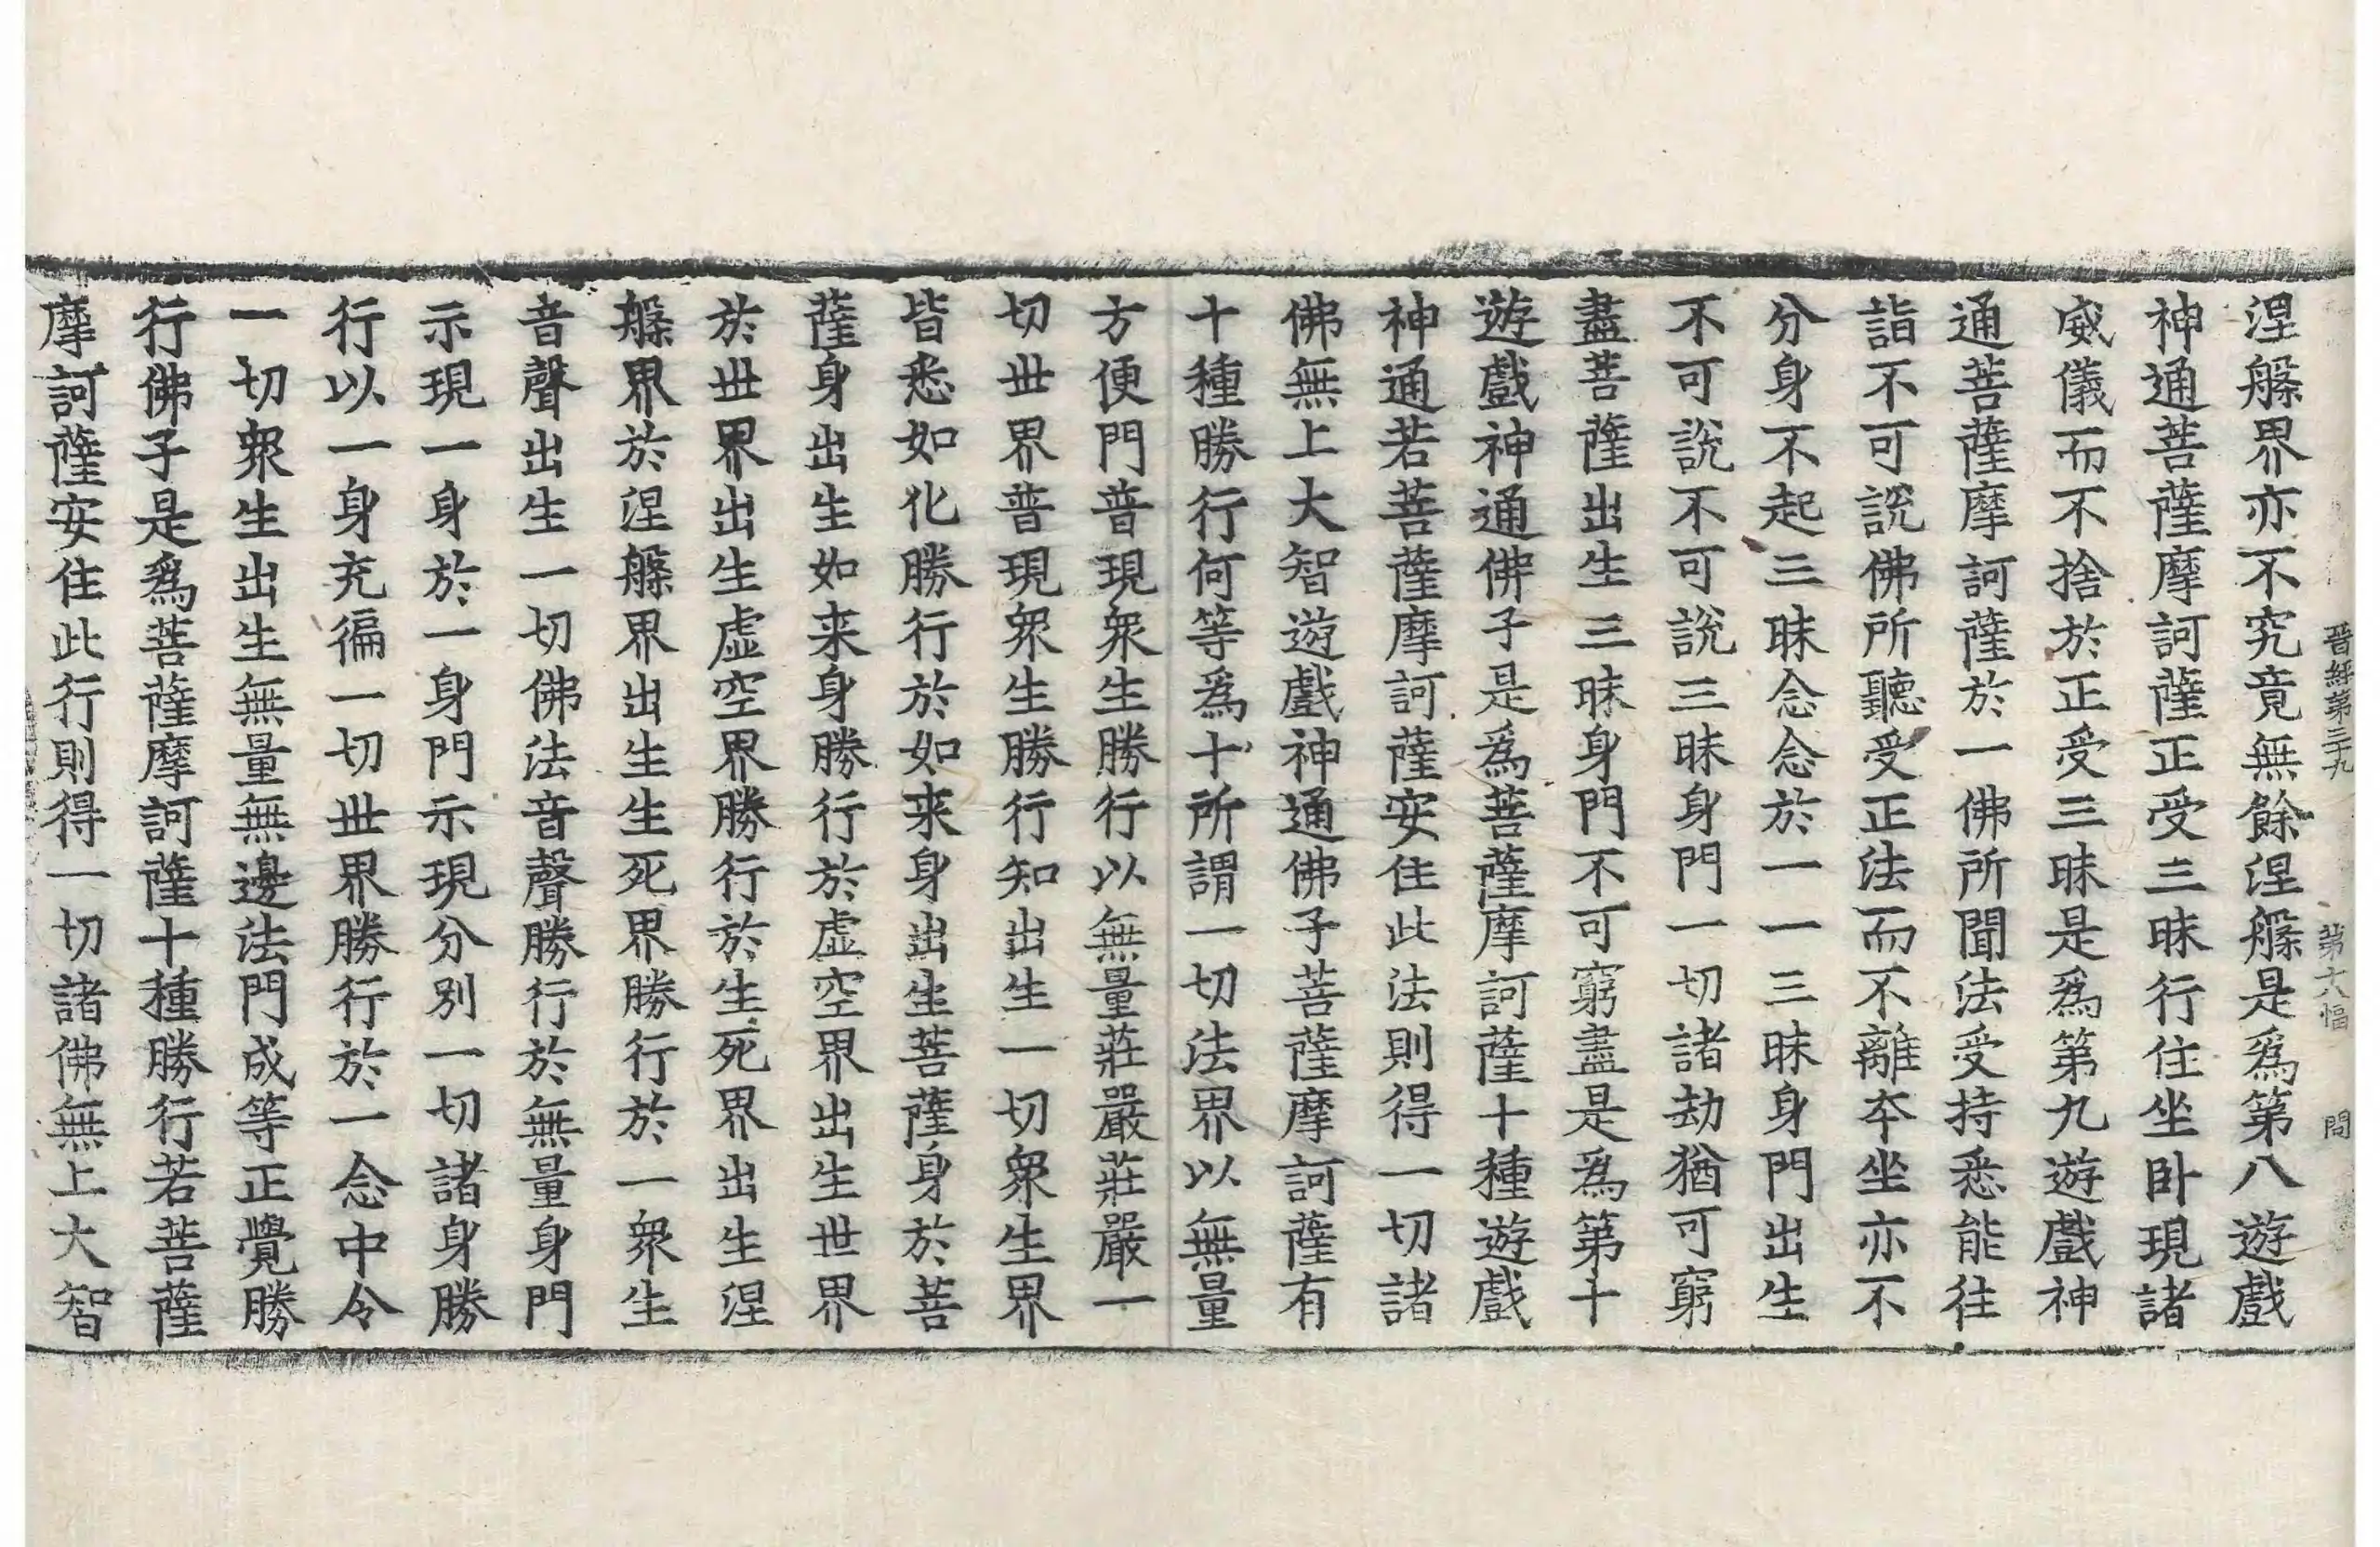 晉經第三十九 第六幅 問
涅槃界亦不究竟無餘涅槃是為第八遊戲
神通菩薩摩訶薩正受三昧行住坐卧現諸
威儀而不捨於正受三昧是為第九遊戲神
通菩薩摩訶薩於一佛所聞法受持悉能往
詣不可說佛所聽受正法而不離夲坐亦不
分身不起三昧念念於一一三昧身門出生
不可說不可說三昧身門一切諸劫猶可窮
盡菩薩出生三昧身門不可窮盡是為第十
遊戲神通佛子是為菩薩摩訶薩十種遊戲
神通若菩薩摩訶薩安住此法則得一切諸
佛無上大智遊戲神通佛子菩薩摩訶薩有
十種勝行何等為十所謂一切法界以無量
方便門普現衆生勝行以無量莊嚴莊嚴一
切世界普現衆生勝行知出生一切衆生界
皆悉如化勝行於如来身出生菩薩身於菩
薩身出生如来身勝行於虛空界出生世界
於世界出生虛空界勝行於生死界出生涅
槃界於涅槃界出生生死界勝行於一衆生
音聲出生一切佛法音聲勝行於無量身門
示現一身於一身門示現分别一切諸身勝
行以一身充徧一切世界勝行於一念中令
一切衆生出生無量無邊法門成等正覺勝
行佛子是為菩薩摩訶薩十種勝行若菩薩
摩訶薩安住此行則得一切諸佛無上大智